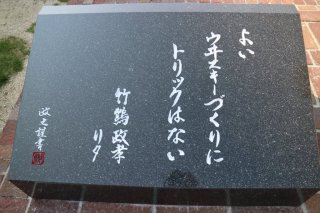 よい
ウヰスキーづくりに
トリックはない
竹鶴政孝
リタ